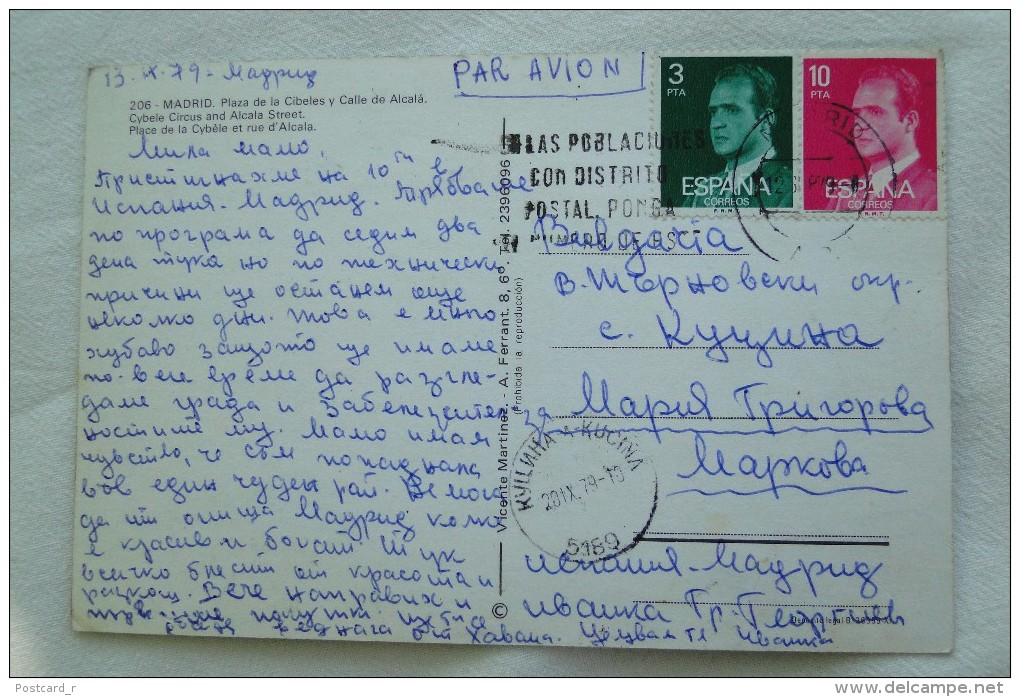 13.IX.79 - Мадрид
PAR AVION
206 - MADRID. Plaza de la Cibeles y Calle de Alcalá.
Cybele Circus and Alcala Street.
Place de la Cybèle et rue d'Alcala.
Мила мамо,
Пристигнахме на 10ти в
Испания - Мадрид. Трябваше
по програма да седим два
дена тука но по технически
причини ще останем още
няколко дни. Това е много
хубаво защото ще имаме
по-вече време да разгле-
даме града и забележител-
ностите му. Мамо имам
чувство, че съм попаднала
във един чуден рай. Не мога
да ти опиша Мадрид колко
е красив и богат. Тук
всичко блести от красота и
разкош. Вече направих и
ще
веднага от Хавана. Целувам те Иванка
Vicente Martinez. - A. Ferrant, 8, 6º, Tel. 2396096
(Prohibida la reproducción)
©
3
PTA
ESPAÑA
CORREOS
F.N.M.T.
10
PTA
ESPAÑA
CORREOS
F.N.M.T.
LAS POBLACIONES
CON DISTRITO
POSTAL, PONGA
България
В. Търновски окр.
с. Куцина
за Мария Григорова
Маркова
КУЦИНА KUCINA
20.IX.79-10
5189
Испания - Мадрид
Иванка Гр. Георгиева
Postcard_r
delcampe.net